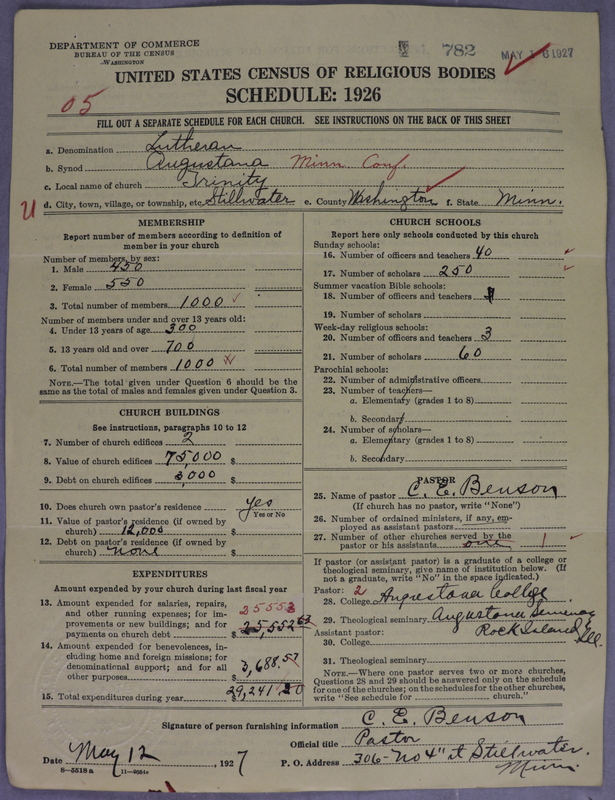 DEPARTMENT OF COMMERCE
BUREAU OF THE CENSUS
WASHINGTON
782
MAY 16 1927
UNITED STATES CENSUS OF RELIGIOUS BODIES
SCHEDULE: 1926
05
FILL OUT A SEPARATE SCHEDULE FOR EACH CHURCH. SEE INSTRUCTIONS ON THE BACK OF THIS SHEET
a. Denomination Lutheran
b. Synod Augustana Minn. Conf.
c. Local name of church Trinity
U d. City, town, village, or township, etc. Stillwater e. County Washington f. State Minn.
MEMBERSHIP
Report number of members according to definition of
member in your church
Number of members by sex:
1. Male 450
2. Female 550
3. Total number of members 1000
Number of members under and over 13 years old:
4. Under 13 years of age 300
5. 13 years old and over 700
6. Total number of members 1000
NOTE.—The total given under Question 6 should be the
same as the total of males and females given under Question 3.
CHURCH BUILDINGS
See instructions, paragraphs 10 to 12
7. Number of church edifices 2
8. Value of church edifices 75,000 $
9. Debt on church edifices 3,000 $
10. Does church own pastor's residence yes
Yes or No
11. Value of pastor's residence (if owned by
church) 12,000 $
12. Debt on pastor's residence (if owned by
church) none $
EXPENDITURES
Amount expended by your church during last fiscal year
13. Amount expended for salaries, repairs,
and other running expenses; for im-
provements or new buildings; and for
payments on church debt $ 25,552.63
25553
14. Amount expended for benevolences,
including home and foreign missions; for
denominational support; and for all
other purposes $ 3,688.57
15. Total expenditures during year $ 29,241.20
CHURCH SCHOOLS
Report here only schools conducted by this church
Sunday schools:
16. Number of officers and teachers 40
17. Number of scholars 250
Summer vacation Bible schools:
18. Number of officers and teachers
19. Number of scholars
Week-day religious schools:
20. Number of officers and teachers 3
21. Number of scholars 60
Parochial schools:
22. Number of administrative officers
23. Number of teachers—
a. Elementary (grades 1 to 8)
b. Secondary
24. Number of scholars—
a. Elementary (grades 1 to 8)
b. Secondary
PASTOR
25. Name of pastor C. E. Benson
(If church has no pastor, write "None")
26. Number of ordained ministers, if any, em-
ployed as assistant pastors
27. Number of other churches served by the
pastor or his assistants one 1
If pastor (or assistant pastor) is a graduate of a college or
theological seminary, give name of institution below. (If
not a graduate, write "No" in the space indicated.)
Pastor: 2
28. College Augustana College
29. Theological seminary Augustana Seminary
Assistant pastor: Rock Island Ill.
30. College
31. Theological seminary
NOTE.—Where one pastor serves two or more churches,
Questions 28 and 29 should be answered only on the schedule
for one of the churches; on the schedules for the other churches,
write "See schedule for church."
Signature of person furnishing information C. E. Benson
Official title Pastor
Date May 12, 1927 P. O. Address 306-No 4" st Stillwater.
Minn.
8—5518a 11—9084a